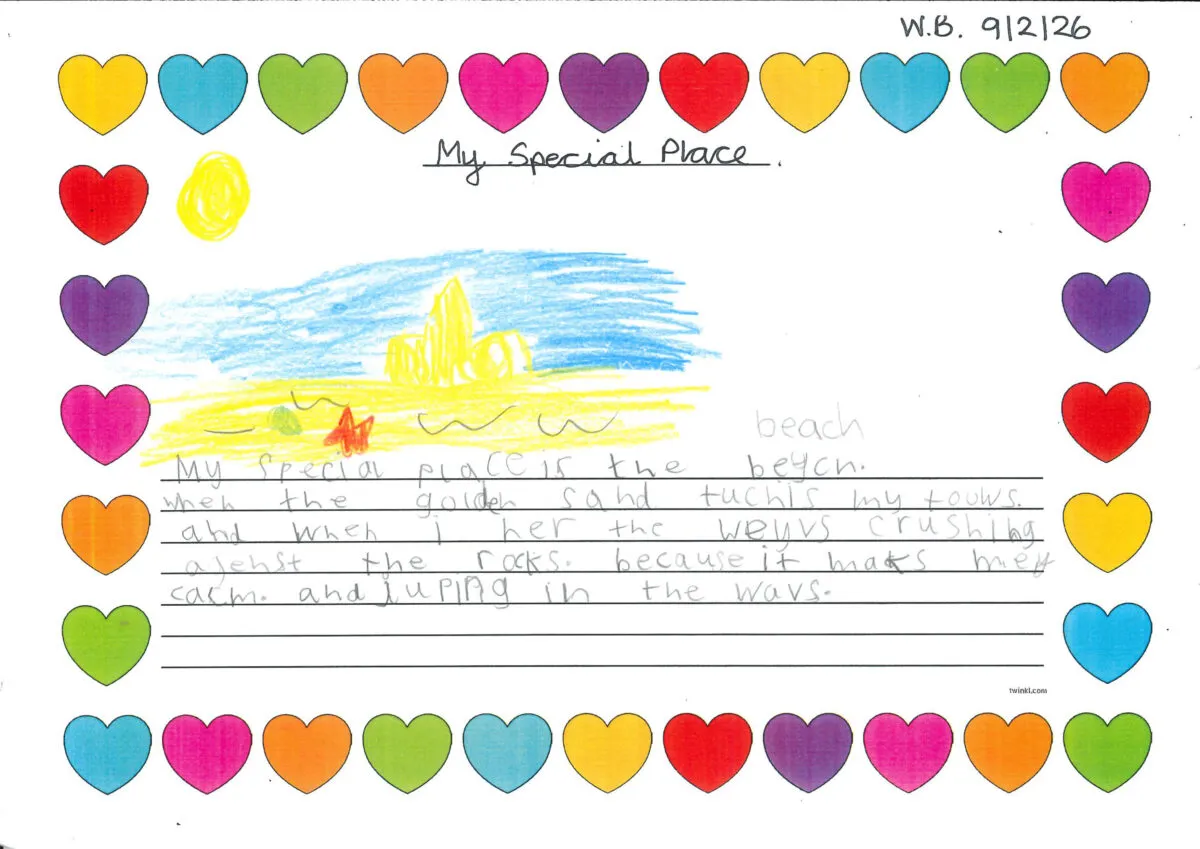 W.B. 9/2/26
My Special Place.
beach
My special place is the beycn.
when the golden sand tuchis my touws.
and when i her the weyvs crushing
ajenst the rocks. because it maks me
cacm. and juping in the wavs.
twinkl.com